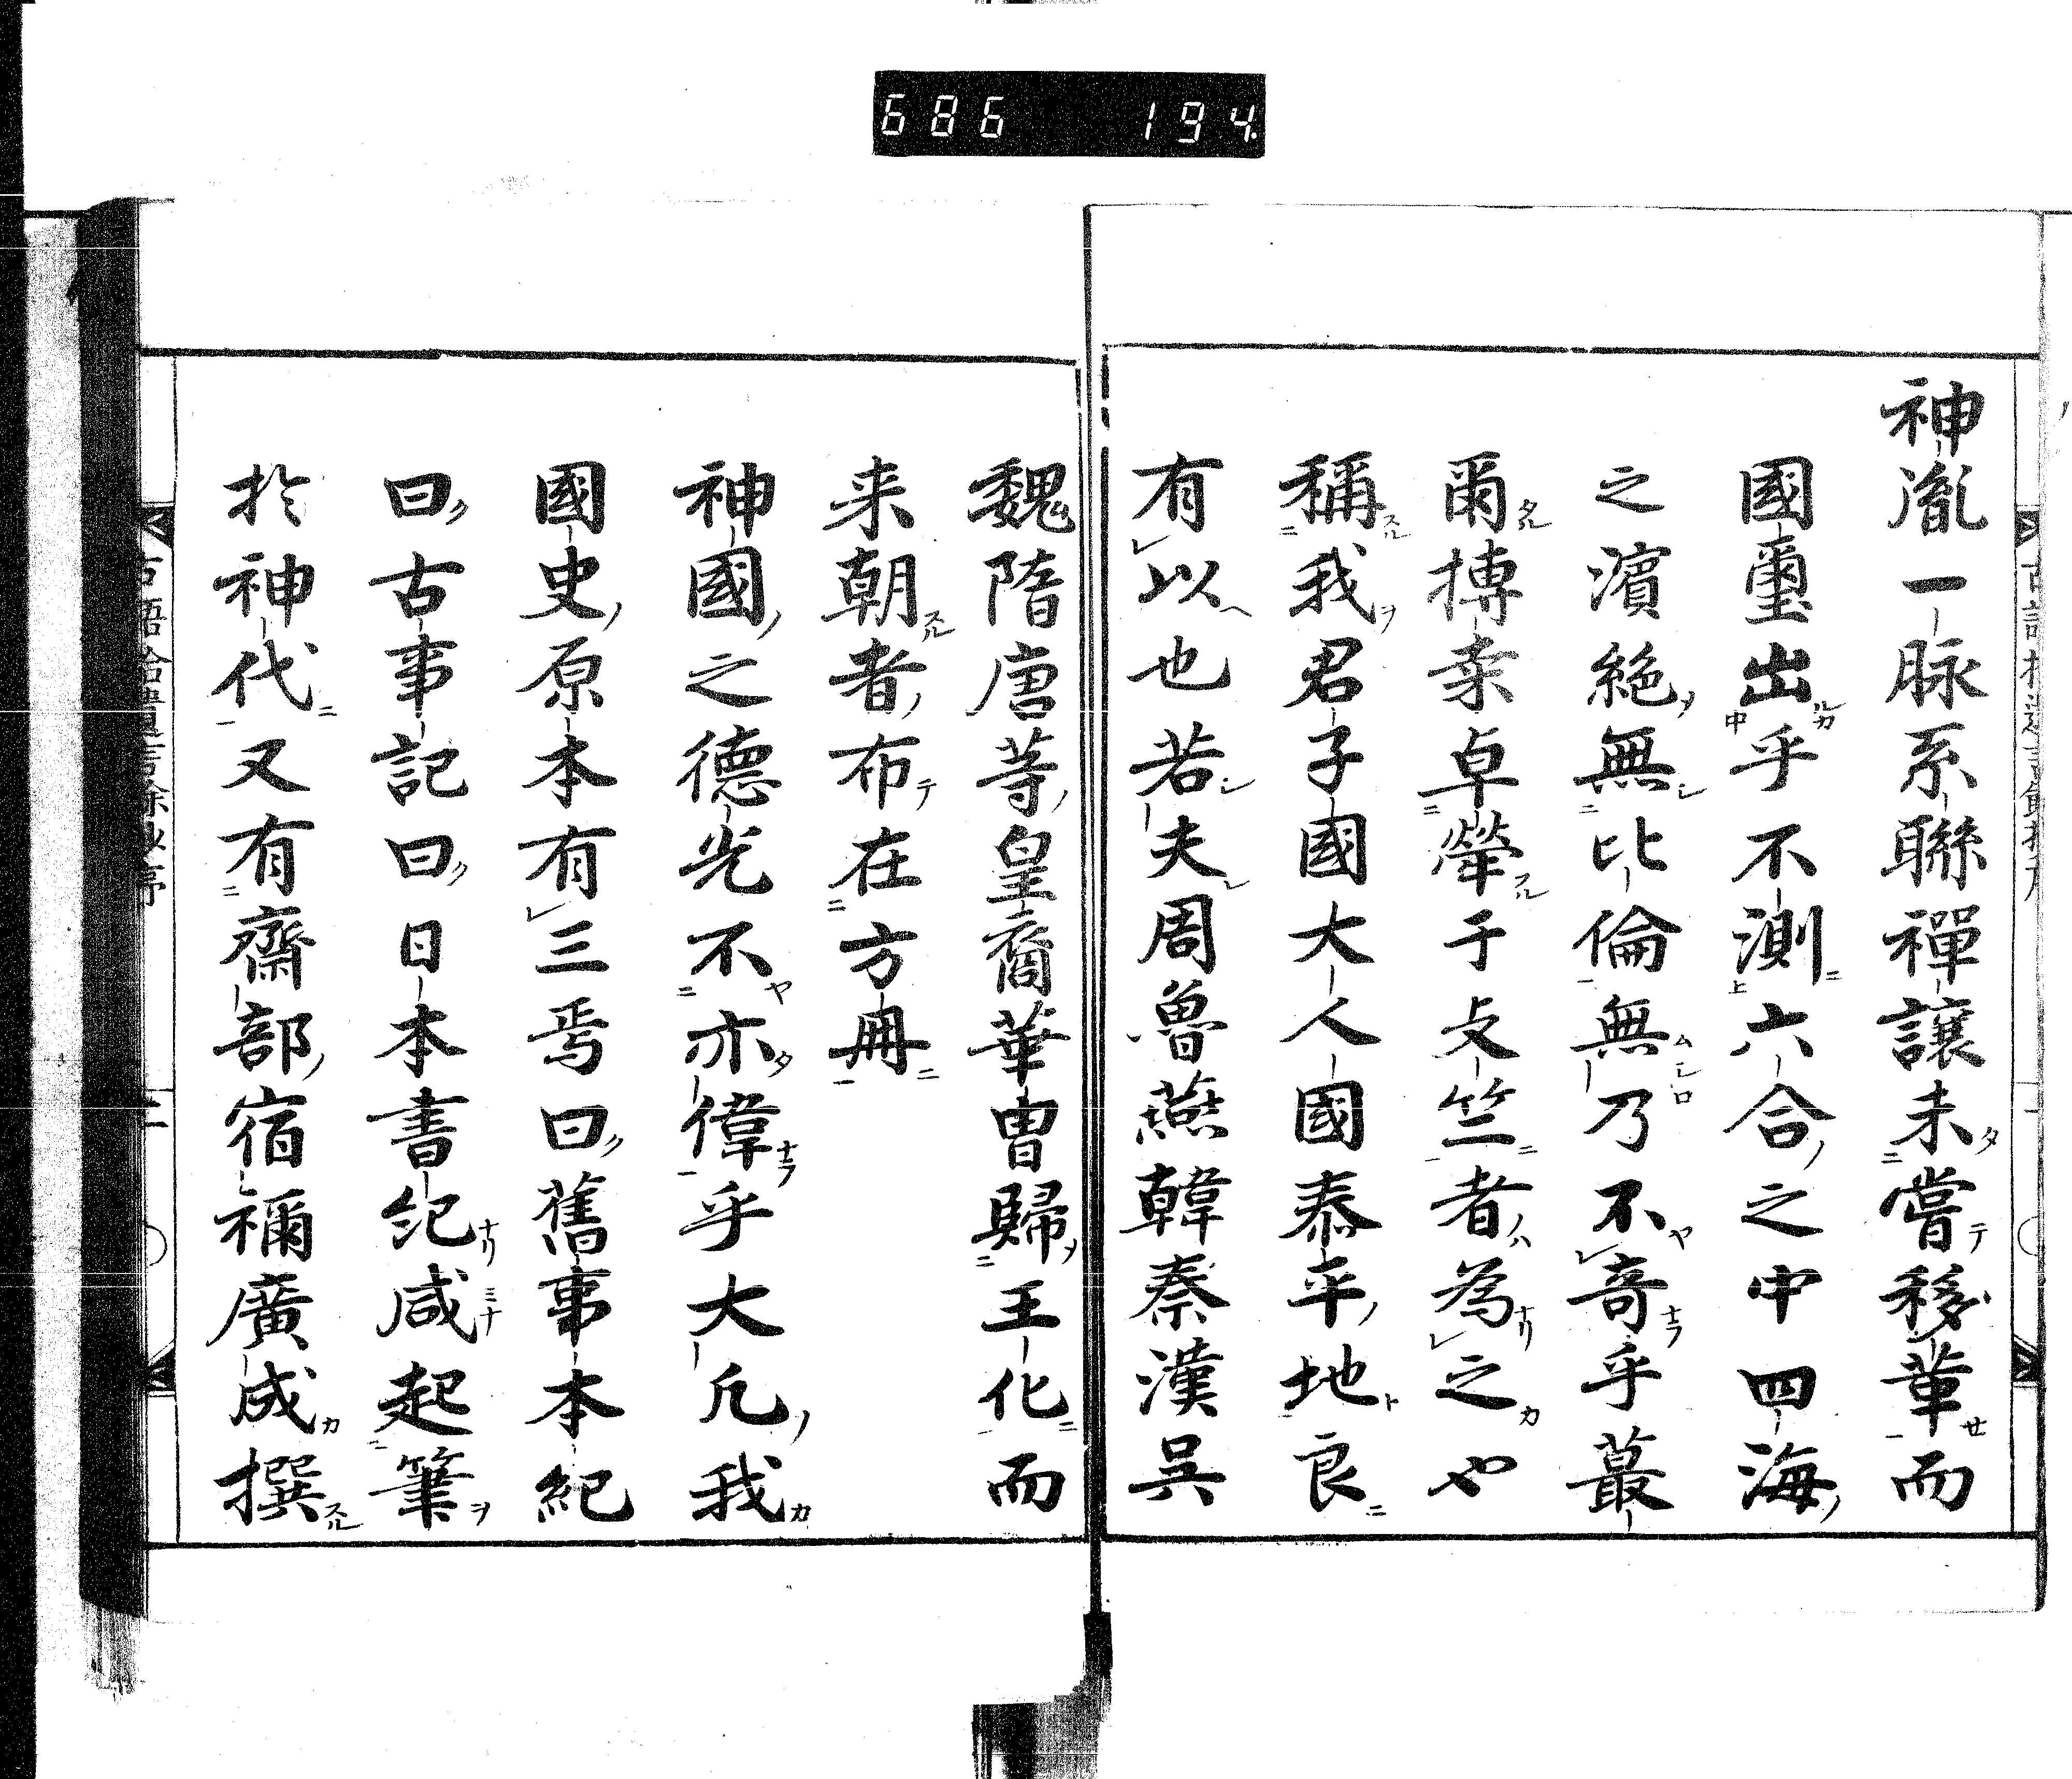 686 194
神胤一脉系聯禪讓未嘗移革而
國璽出乎不測六合之中四海
之濱絶無比倫無乃不奇乎蕞
爾搏桑卓犖于支竺者為之也
稱我君子國大人國泰平地良
有以也若夫周魯燕韓秦漢吳
魏隋唐等皇裔華冑歸王化而
来朝者布在方冊
神國之德光不亦偉乎大凡我
國史原本有三焉曰舊事本紀
曰古事記曰日本書紀咸起筆
於神代又有齋部宿禰廣成撰